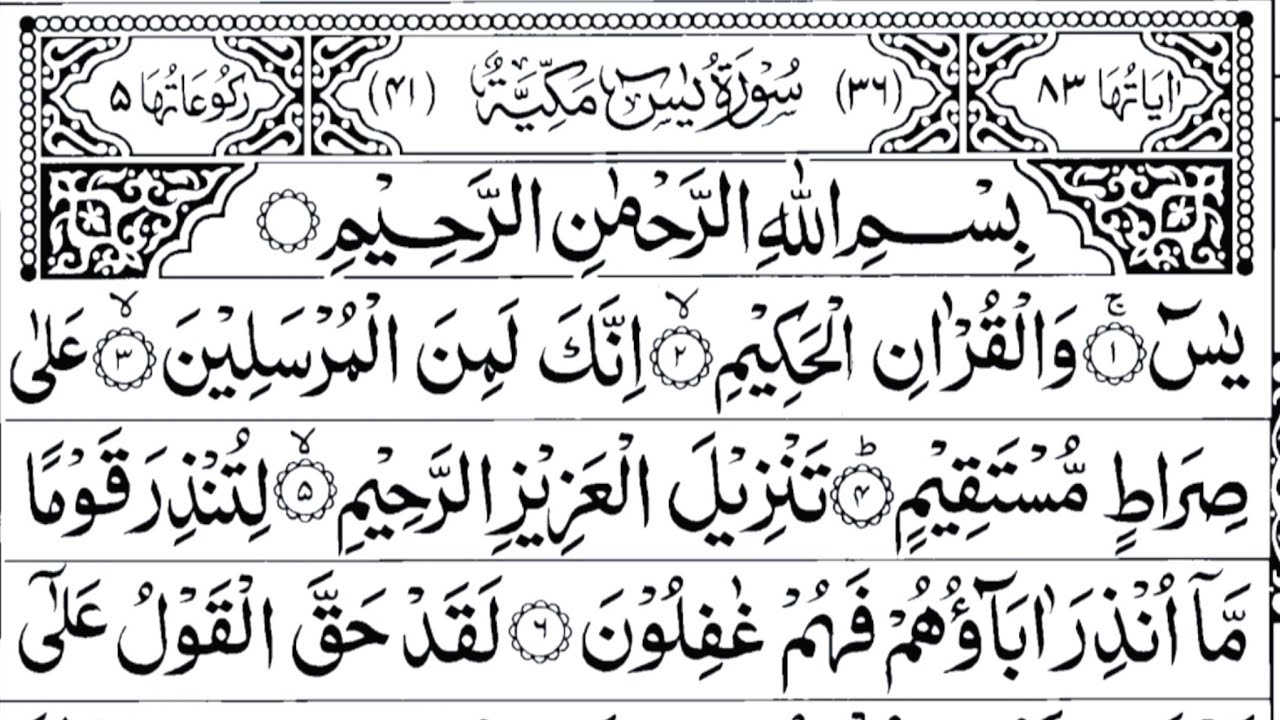 اٰیَاتُهَا ۸۳ (۳۶) سُوْرَةُ يٰسٓ مَكِّيَّةٌ (۴۱) رُكُوْعَاتُهَا ۵
بِسْمِ اللّٰهِ الرَّحْمٰنِ الرَّحِيْمِ
يٰسٓ ۚ﴿۱﴾ وَالْقُرْاٰنِ الْحَكِيْمِ ۙ﴿۲﴾ اِنَّكَ لَمِنَ الْمُرْسَلِيْنَ ۙ﴿۳﴾ عَلٰى
صِرَاطٍ مُّسْتَقِيْمٍ ؕ﴿۴﴾ تَنْزِيْلَ الْعَزِيْزِ الرَّحِيْمِ ۙ﴿۵﴾ لِتُنْذِرَ قَوْمًا
مَّاۤ اُنْذِرَ اٰبَآؤُهُمْ فَهُمْ غٰفِلُوْنَ ﴿۶﴾ لَقَدْ حَقَّ الْقَوْلُ عَلٰۤى